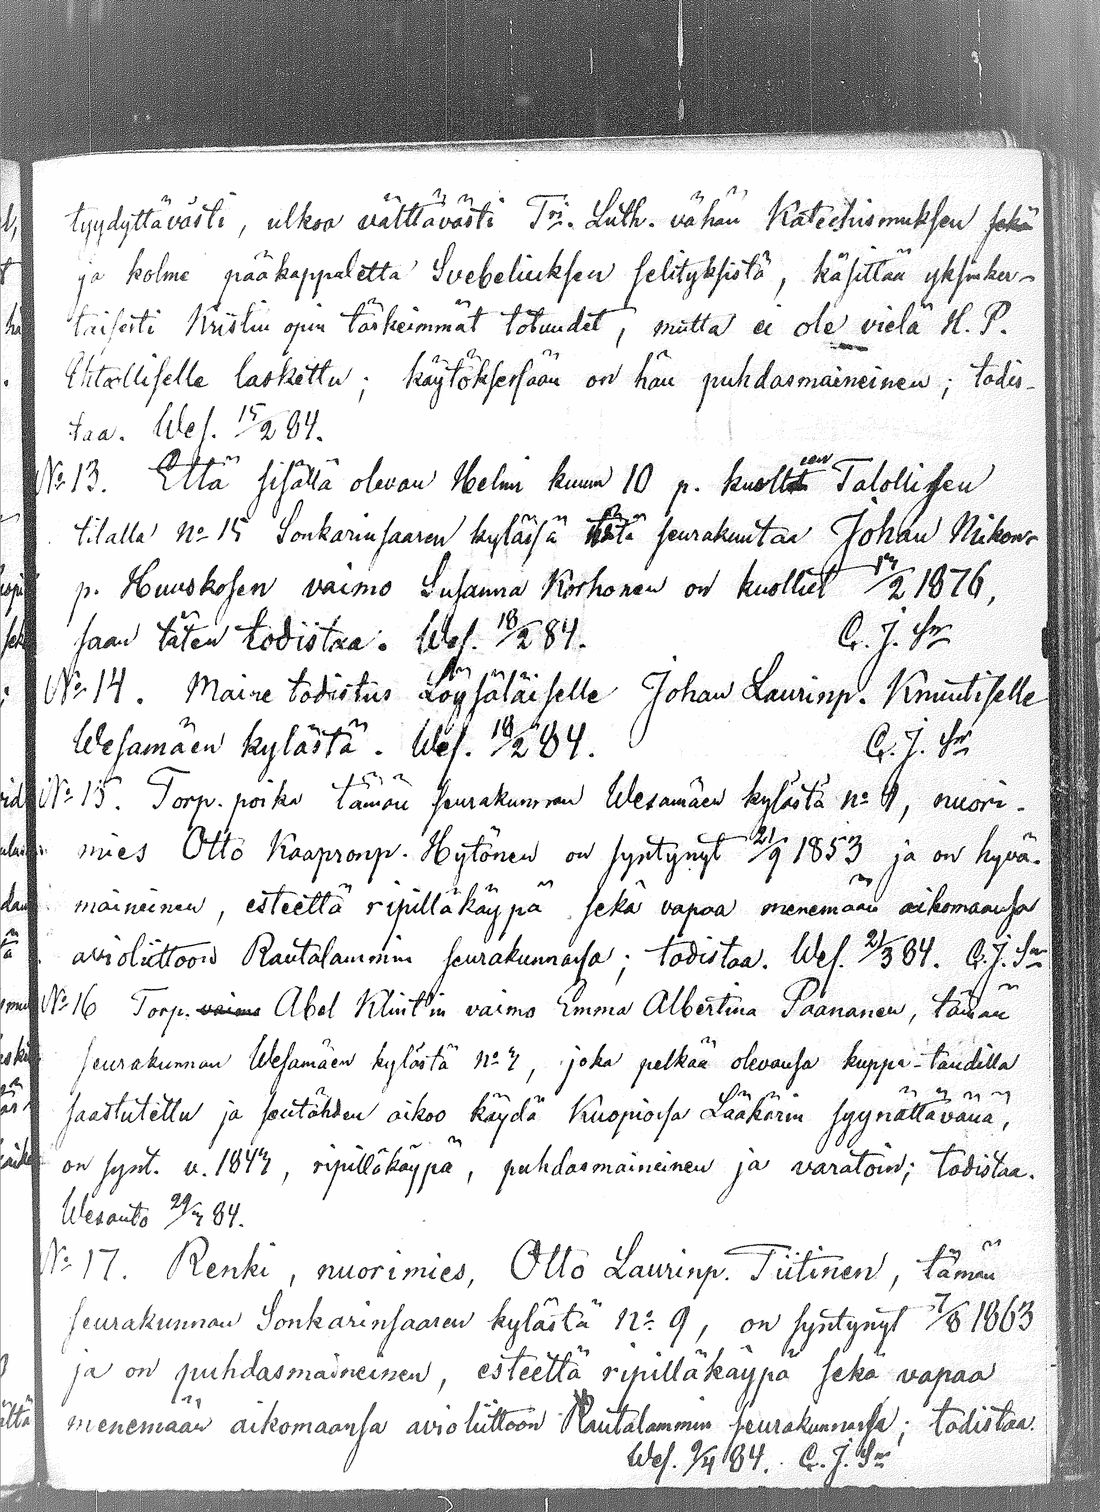 tyydyttävästi, ulkoa välttävästi Tri. Luth. vähän Katechismuksen sekä
ja kolme pääkappaletta Svebeliuksen selityksistä, käsittää yksinker-
taisesti Kristin opin tärkeimmät totuudet, mutta ei ole vielä H. P.
Ehtoolliselle laskettu; käytöksessään on hän puhdasmaineinen; todis-
taa. Wes. 15/2 84.
No 13. Että sisällä olevan Helmi kuun 10 p. kuolleen Talollisen
tilalla no 15 Sonkarinsaaren kylässä tätä seurakuntaa Johan Nikon-
p. Huuskosen vaimo Susanna Korhonen on kuollut 17/2 1876,
saan täten todistaa. Wes. 18/2 84. C. J. Sn
No 14. Maine todistus Löysäläiselle Johan Laurinp. Knuutiselle
Wesamäen kylästä. Wes. 18/2 84. C. J. Sn
No 15. Torp. poika tämän seurakunnan Wesamäen kylästä no 9, nuori-
mies Otto Kaapronp. Hytönen on syntynyt 21/9 1853 ja on hyvä-
maineinen, esteettä ripilläkäypä sekä vapaa menemään aikomaansa
avioliittoon Rautalammin seurakunnassa; todistaa. Wes. 21/3 84. C. J. Sn
No 16 Torp. vaimo Abel Klint'in vaimo Emma Albertina Paananen, tämän
seurakunnan Wesamäen kylästä no 7, joka pelkää olevansa kuppa-taudilla
saastutettu ja sentähden aikoo käydä Kuopiossa Lääkärin syynättävänä,
on synt. v. 1847, ripilläkäypä, puhdasmaineinen ja varatoin; todistaa.
Wesanto 29/3 84.
No 17. Renki, nuorimies, Otto Laurinp. Tiitinen, tämän
seurakunnan Sonkarinsaaren kylästä no 9, on syntynyt 7/8 1863
ja on puhdasmaineinen, esteettä ripilläkäypä sekä vapaa
menemään aikomaansa avioliittoon Rautalammin seurakunnassa; todistaa.
Wes. 9/4 84. C. J. Sn